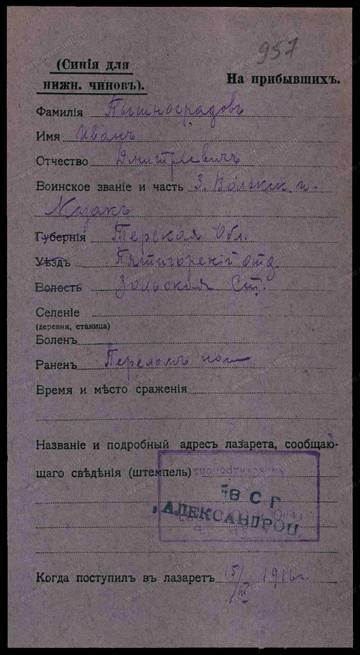 957
(Синія для
нижн. чиновъ).
На прибывшихъ.
Фамилія Пышноградовъ
Имя Иванъ
Отчество Дмитріевичъ
Воинское званіе и часть 3. Волжск. п.
Казакъ
Губернія Терская Обл.
Уѣздъ Пятигорскій отд.
Волость Зольская Ст.
Селеніе
(деревня, станица)
Боленъ
Раненъ Перелом
Время и мѣсто сраженія
Названіе и подробный адресъ лазарета, сообщаю-
щаго свѣдѣнія (штемпель)
ВСГ
"АЛЕКСАНДРОП
Когда поступилъ въ лазаретъ 15/ 1916 г.